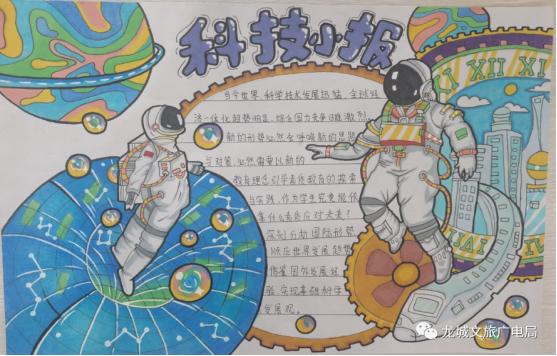 科技小报
当今世界,科学技术发展迅猛,全球经
济一体化趋势明显,综合国力竞争日趋激烈,
新的形势必然会呼唤新的思路
与对策,必然需要以新的
教育理念引导着使教育的探索
与实践,作为学生究竟能依
靠什么去应对未来!
深刻分析国际形势
顺应世界发展趋势
借鉴国外发展经
验,实现基础科学
发展观。
XI XII I
VI VII
龙城文旅广电局